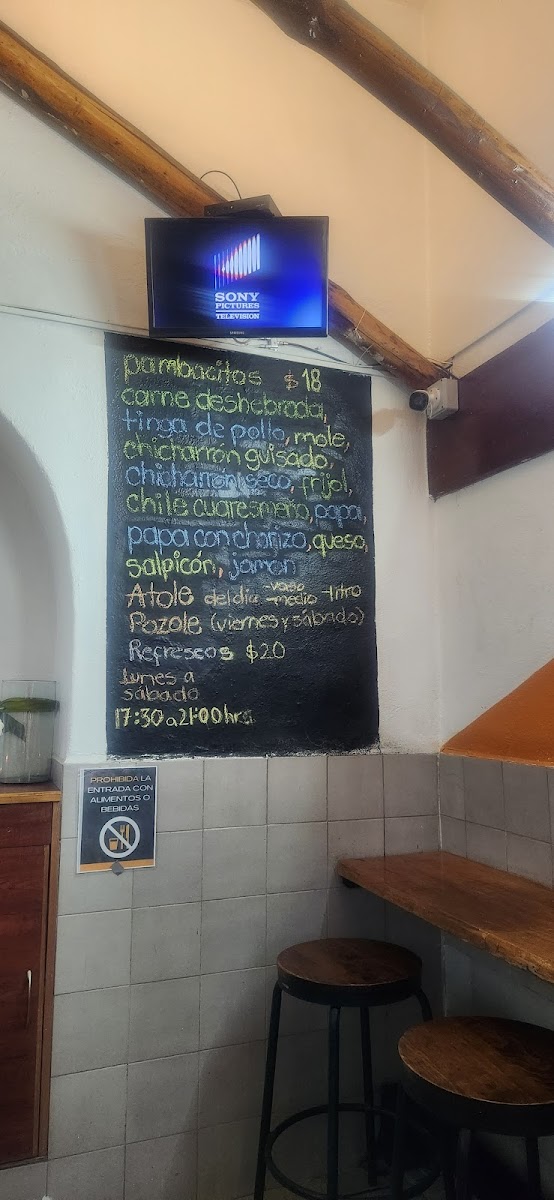 SONY
PICTURES
TELEVISION
SAMSUNG
pambacitos $18
carne deshebrada,
tinga de pollo, mole,
chicharrón guisado,
chicharrón seco, frijol,
chile cuaresmeño, papa,
papa con chorizo, queso,
salpicón, jamon
Atole del día -vaso -medio -litro
Pozole (viernes y sábado)
Refrescos $20
lunes a
sábado
17:30 a 21:00 hrs
PROHIBIDA LA
ENTRADA CON
ALIMENTOS O
BEBIDAS